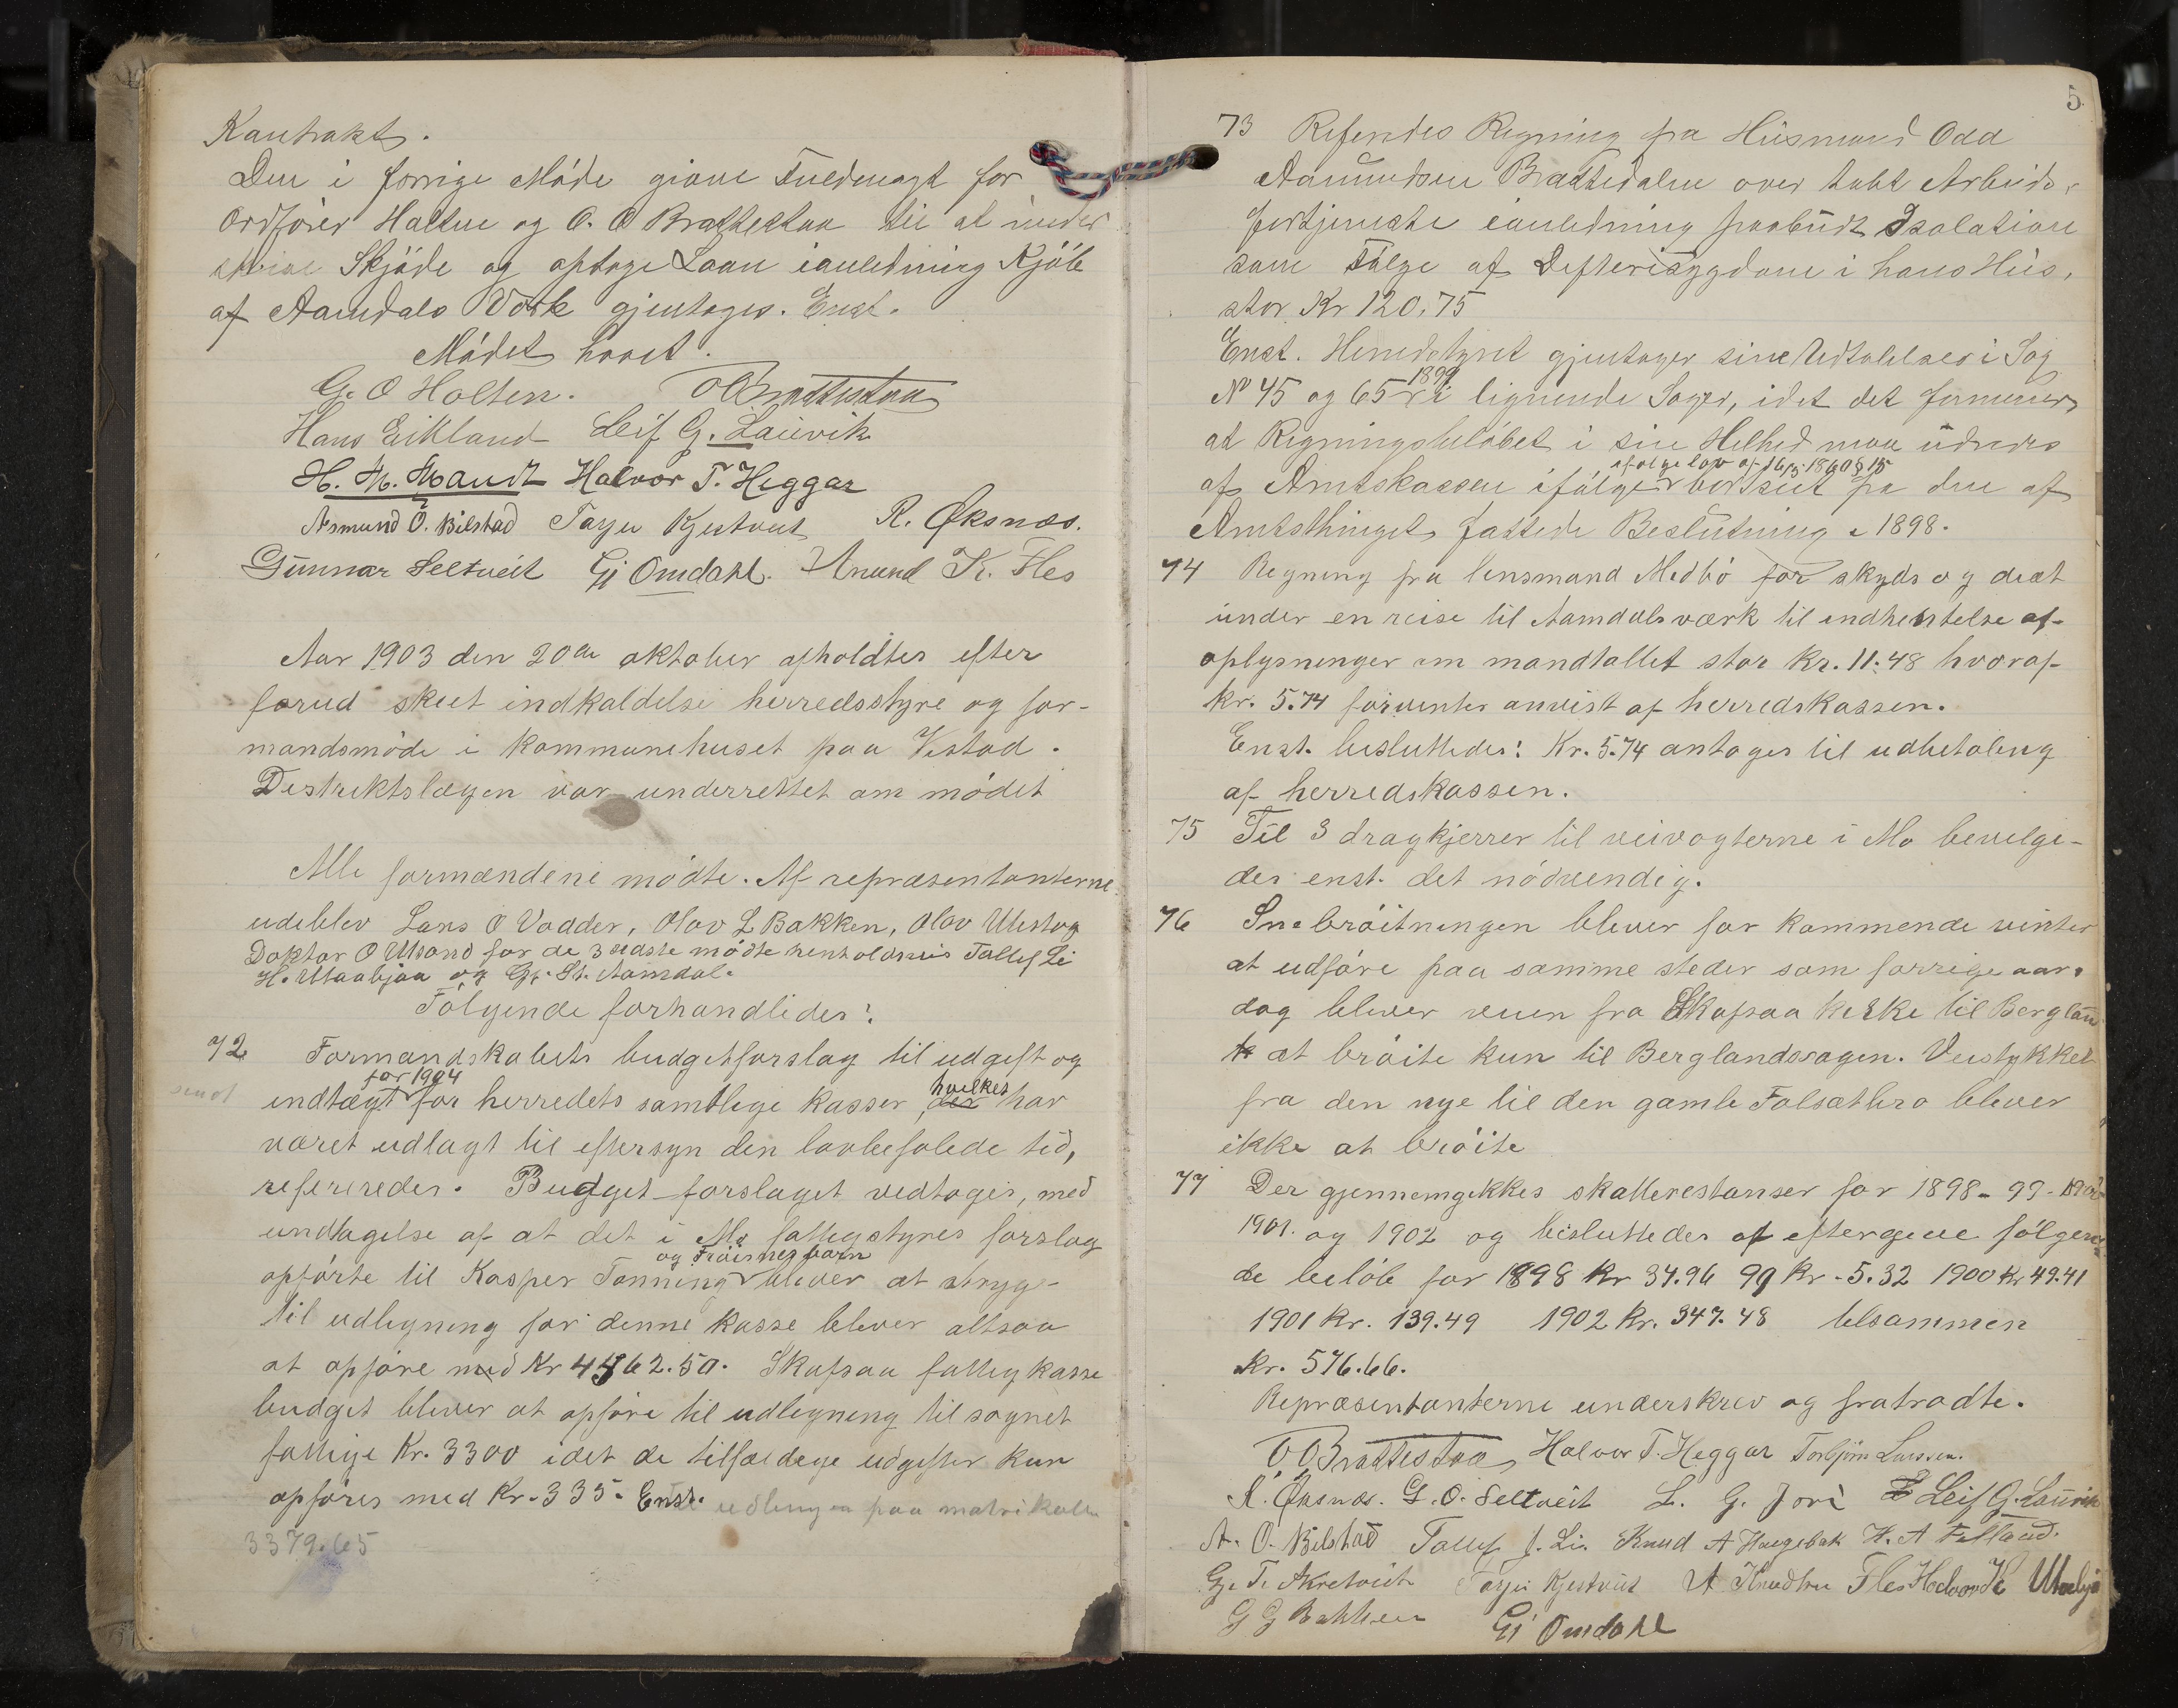 Kontrakt.
Den i forrige Møde givne Fuldmagt for
Ordfører Holten og O. O Brattestaa til at under
skrive Skjøde og optage Laan i anledning Kjøb
af Aamdals Værk gjentages. Enst.
Mødet hævet.
G. O Holten. OBrattestaa
Hans Eikland Leif G. Lauvik
H. M. Mandt Halvor T. Heggar
Asmund O. Bilstad Tarjei Kjestveit R. Øksnæs.
Gunnar Seltveit Gj Omdahl. Anund K. Fles
Aar 1903 den 20de oktober afholdtes efter
forud skeet indkaldelse herredsstyre og for-
mandsmøde i kommunehuset paa Vistad.
Destriktslægen var underrettet om mødet
Alle formændene mødte. Af repræsentanterne
udeblev Lars O Vadder, Olav L Bakken, Olav Ulestog
Doktor O Utsond for de 3 sidste mødte henholdsvis Tallef Li
H. Utaabjaa og Gj. St. Aamdal.
Følgende forhandledes:
72 Formandskabets budgetforslag til udgift og
for 1904 hvilket
indtægt for herredets samtlige kasser, der har
været udlagt til eftersyn den lovbefalede tid,
refereredes. Budget-forslaget vedtoges, med
undtagelse af at det i Mo fattigstyres forslag
og Frøisnesbarn
opførte til Kasper Tonning bliver at stryge
til udligning for denne kasse bliver altsaa
at opføre med Kr 4562.50. Skafsaa fattigkasse
budget bliver at opføre til udligning til sognet
fattige Kr. 3300 idet de tilfældige udgifter kun
opføres med Kr. 335. Enst. udligen paa matrikulen
3379.65
5
73 Referedes Regning fra Husmand Odd
Aamundsen Brattedalen over tabt Arbeids-
fortjeneste i anledning paabudt Isolation
som Følge af Difterisygdom i hans Hus,
stor Kr 120.75
Enst. Herredstyret gjentager sine Udtalelser i Sag
1899
No 45 og 65 i lignende Sager, idet det formener
at Regningsbeløbet i sin Helhed maa udredes
ifølge lov af 16/5 1860 § 15
af Amtskassen ifølge bortseet fra den af
Amtsthinget fattede Beslutning i 1898.
74 Regning fra lensmand Medbø for skyds og diæt
under en reise til Aamdals værk til indhentelse af
oplysninger om mandtallet stor Kr. 11.48 hvoraf
kr. 5.74 forventes anvist af herredskassen.
Enst. besluttedes: Kr. 5.74 antages til udbetaling
af herredskassen.
75 Til 3 dragkjerrer til veivogterne i Mo bevilge-
des enst. det nødvendig.
76 Snebrøitningen bliver for kommende vinter
at udføre paa samme steder som forrige aar.
dog bliver veien fra Skafsaa kirke til Bergland
at brøite kun til Berglandsvogen. Veistykket
fra den nye til den gamle Folsæthbro bliver
ikke at brøite
77 Der gjennemgikkes skatterestanser for 1898-99-1900
1901. og 1902 og besluttedes at eftergive følgen
de beløb for 1898 Kr 34.96 99 Kr. 5.32 1900 Kr 49.41
1901 Kr. 139.49 1902 Kr. 347.48 tilsammen
Kr. 576.66.
Repræsentanterne underskrev og fratrædte.
O Brattestaa Halvor T. Heggar Torbjørn Larssen.
R. Øksnæs. G. O. Seltveit L. G. Jore Leif G. Lauvik
A. O. Bilstad Tallef J. Li. Knud A Haugebak H. A Felland.
Gj. T. Akretveit Tarjei Kjestveit A Knudsen Fles Halvor K Utaabjå
G G Bakken Gj Omdahl